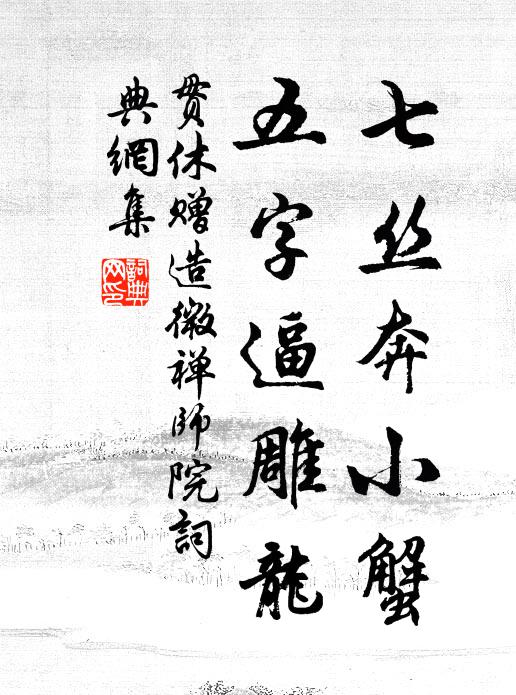 七丝奔小蟹
五字逼雕龍
贯休赠造微禅师院詞
典網集
詞典
网印